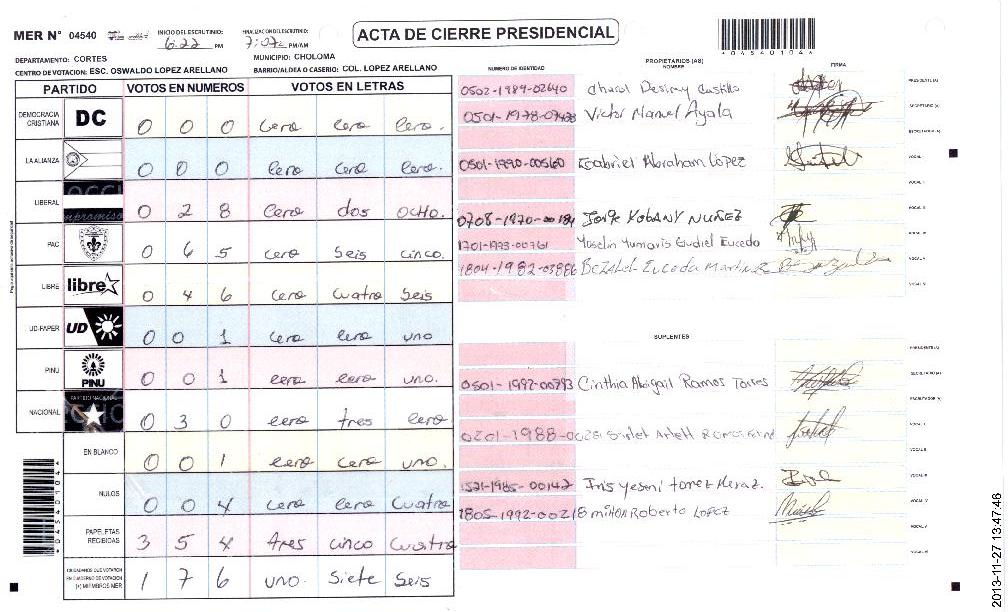 MER N° 04540
INICIO DEL ESCRUTINIO: 6:22 PM
FINALIZACION DEL ESCRUTINIO: 7:07 PM/AM
ACTA DE CIERRE PRESIDENCIAL
*045401044*
DEPARTAMENTO: CORTES
MUNICIPIO: CHOLOMA
CENTRO DE VOTACION: ESC. OSWALDO LOPEZ ARELLANO
BARRIO/ALDEA O CASERIO: COL. LOPEZ ARELLANO
PARTIDO VOTOS EN NUMEROS VOTOS EN LETRAS
DEMOCRACIA CRISTIANA DC 0 0 0 Cero Cero Cero.
LA ALIANZA 0 0 0 Cero Cero Cero.
LIBERAL 0 2 8 Cero dos ocho.
PAC 0 6 5 Cero Seis cinco.
LIBRE libre 0 4 6 Cero Cuatro Seis
UD-FAPER UD 0 0 1 Cero Cero uno
PINU PINU 0 0 1 cero cero uno.
NACIONAL PARTIDO NACIONAL 0 3 0 cero tres cero
EN BLANCO 0 0 1 cero cero uno.
NULOS 0 0 4 Cero Cero Cuatro
PAPELETAS RECIBIDAS 3 5 4 tres cinco Cuatro
CIUDADANOS QUE VOTARON EN CUADERNO DE VOTACION (+) MIEMBROS MER 1 7 6 uno. Siete Seis
NUMERO DE IDENTIDAD
PROPIETARIOS (AS)
NOMBRE
FIRMA
0502-1989-02640 Desiray Castillo PRESIDENTE (A)
Victor Manuel Ayala SECRETARIO (A)
ESCRUTADOR (A)
0501-1990-00560 Gabriel Abraham Lopez VOCAL I
VOCAL II
0708-1970-00184 Jorge Yobany Nuñez VOCAL III
1701-1973-00761 Yoselin Yumaris Gudiel Eucedo VOCAL IV
1804-1982-03886 Bezabel Euceda Martinez VOCAL V
VOCAL VI
SUPLENTES
PRESIDENTE (A)
0501-1992-00793 Cinthia Abigail Ramos Torres SECRETARIO (A)
ESCRUTADOR (A)
Arlett VOCAL I
VOCAL II
Iris Yeseni VOCAL III
1805-1992-00218 Milton Roberto Lopez VOCAL IV
VOCAL V
VOCAL VI
2013-11-27 13:47:46